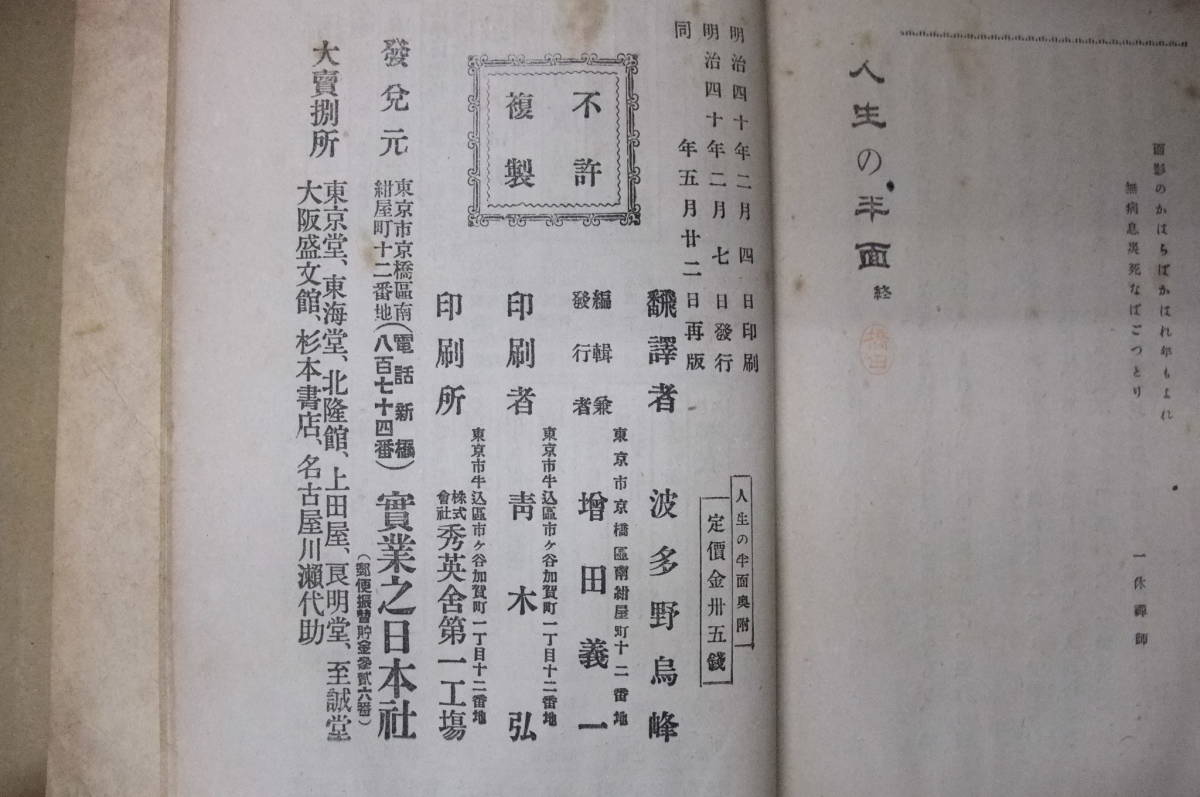 面影のかはらばかはれ年もよれ
無病息災死なばごつとり
一休禪師
人生の半面 終
明治四十年二月四日印刷
明治四十年二月七日發行
同年五月廿二日再版
人生の半面奧附
定價金卅五錢
不許
複製
翻譯者 波多野烏峰
東京市京橋區南紺屋町十二番地
編輯兼
發行者 增田義一
東京市牛込區市ケ谷加賀町一丁目十二番地
印刷者 靑木弘
東京市牛込區市ケ谷加賀町一丁目十二番地
印刷所 株式會社秀英舍第一工塲
發兌元 東京市京橋區南
紺屋町十二番地
(電話新橋
八百七十四番)
實業之日本社
(郵便振替貯金參貳六番)
大賣捌所
東京堂、東海堂、北隆館、上田屋、良明堂、至誠堂
大阪盛文館、杉本書店、名古屋川瀨代助